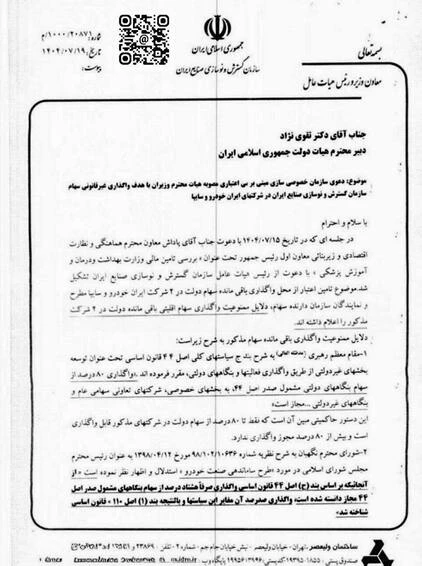 بسمه‌تعالی
معاون وزیر و رئیس هیات عامل
جمهوری اسلامی ایران
سازمان گسترش و نوسازی صنایع ایران
شماره: ۱۰۰۰/۲۰۸۷۱/م
تاریخ: ۱۴۰۴/۰۷/۱۹
پیوست:
جناب آقای دکتر تقوی نژاد
دبیر محترم هیات دولت جمهوری اسلامی ایران
موضوع: دعوی سازمان خصوصی سازی مبنی بر بی اعتباری مصوبه هیات محترم وزیران با هدف واگذاری غیرقانونی سهام
سازمان گسترش و نوسازی صنایع ایران در شرکتهای ایران خودرو و سایپا
با سلام و احترام
در جلسه ای که در تاریخ ۱۴۰۴/۰۷/۱۵ با دعوت جناب آقای پاداش معاون محترم هماهنگی و نظارت
اقتصادی و زیربنائی معاون اول رئیس جمهور تحت عنوان « بررسی تامین مالی وزارت بهداشت ودرمان و
آموزش پزشکی » با دعوت از رئیس هیات عامل سازمان گسترش و نوسازی صنایع ایران تشکیل
شد.موضوع تامین اعتبار از محل واگذاری باقی مانده سهام دولت در ۲ شرکت ایران خودرو و سایپا مطرح
و نمایندگان سازمان دارنده سهام، دلایل ممنوعیت واگذاری سهام اقلیتی باقی مانده دولت در ۲ شرکت
مذکور را اعلام داشته اند.
دلایل ممنوعیت واگذاری باقی مانده سهام مذکور به شرح زیراست:
۱-مقام معظم رهبری به شرح بند ج سیاستهای کلی اصل ۴۴ قانون اساسی تحت عنوان توسعه
بخشهای غیردولتی از طریق واگذاری فعالیتها و بنگاههای دولتی، مقرر فرموده اند «..واگذاری ۸۰ درصد از
سهام بنگاههای دولتی مشمول صدر اصل ۴۴، به بخشهای خصوصی، شرکتهای تعاونی سهامی عام و
بنگاههای غیردولتی ...مجاز است»
این دستور حاکمیتی مبین آن است که نقط تا ۸۰ درصد از سهام دولت در شرکتهای مذکور قابل واگذاری
است و بیش از ۸۰ درصد مجوز واگذاری ندارد.
۲-شورای محترم نگهبان به شرح نظریه شماره ۹۸/۱۰۲/۱۰۶۳۶ مورخ ۱۳۹۸/۰۴/۱۲ به عنوان رئیس محترم
مجلس شورای اسلامی در مورد «طرح ساماندهی صنعت خودرو » استدلال و اظهار نظر نموده است «از
آنجائیکه بر اساس بند (ج) اصل ۴۴ قانون اساسی واگذاری صرفاً هشتاد درصد از سهام بنگاههای مشمول صدر اصل
۴۴ مجاز دانسته شده است، واگذاری صدرصد آن مغایر این سیاستها و بالنتیجه بند (۱) اصل ۱۱۰ قانون اساسی
شناخته شد»
ساختمان ولیعصر ،تهران ، خیابان ولیعصر ، نبش خیابان جام جم ، شماره ۲